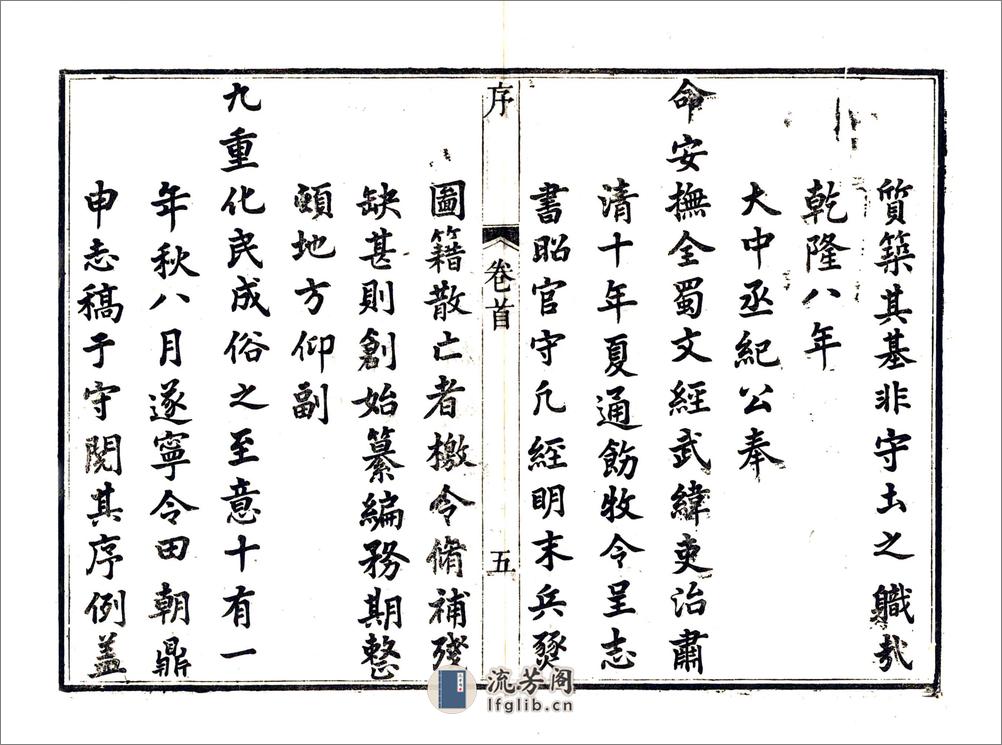 質築其基非守土之職哉
乾隆八年
大中丞紀公奉
命安撫全蜀文經武緯吏治肅
清十年夏通飭牧令呈志
書昭官守凡經明末兵燹
序
卷首
五
圖籍散亡者檄令脩補殘
缺甚則創始纂編務期整
頤地方仰副
九重化民成俗之至意十有一
年秋八月遂寧令田朝鼎
申志稿于守閱其序例蓋
流芳阁
lfglib.cn